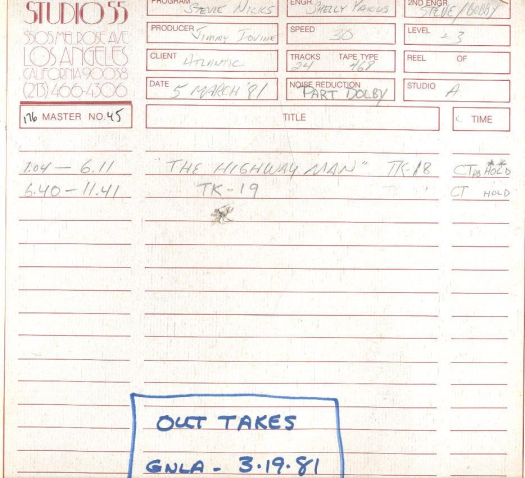 STUDIO 55
5505 MELROSE AVE
LOS ANGELES
CALIFORNIA 90038
(213) 466-4306
PROGRAM STEVIE NICKS
ENGR SHELLY YAKUS
2ND ENGR STEVE/BOBBY
PRODUCER JIMMY IOVINE
SPEED 30
LEVEL +3
CLIENT ATLANTIC
TRACKS 24 TAPE TYPE 468
REEL OF
DATE 5 MARCH '81
NOISE REDUCTION PART DOLBY
STUDIO A
176 MASTER NO. 45
TITLE
TIME
1.04 - 6.11 "THE HIGHWAY MAN" TK-18 CT HOLD
6.40 - 11.41 TK-19 CT HOLD
OUT TAKES
GNLA - 3.19.81